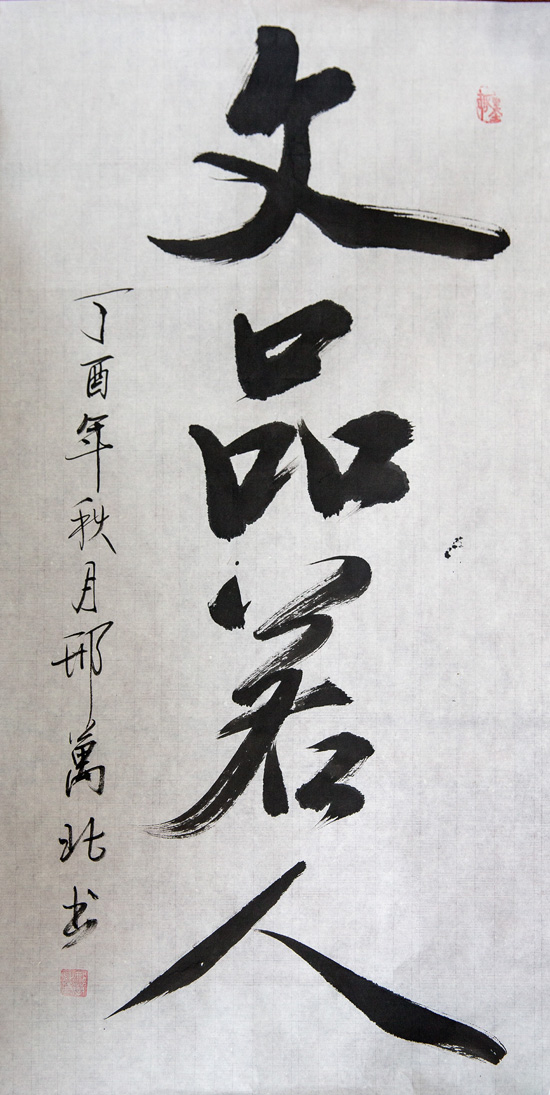 文品若人
丁酉年秋月邢萬北书